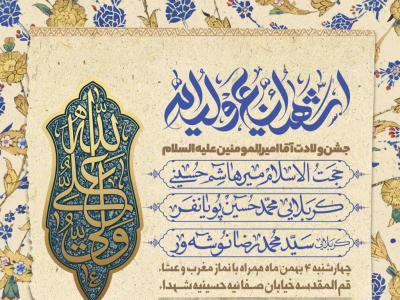 اشهد ان علیا ولی الله
جشن ولادت آقا امیرالمومنین علیه السلام
حجت الاسلام میرهاشم حسینی
کربلایی محمدحسین پویانفر
کربلایی سید محمدرضا نوشه ور
چهارشنبه ۴ بهمن ماه همراه با نماز مغرب و عشاء
قم المقدسه خیابان صفائیه حسینیه شهدا
علی ولی الله